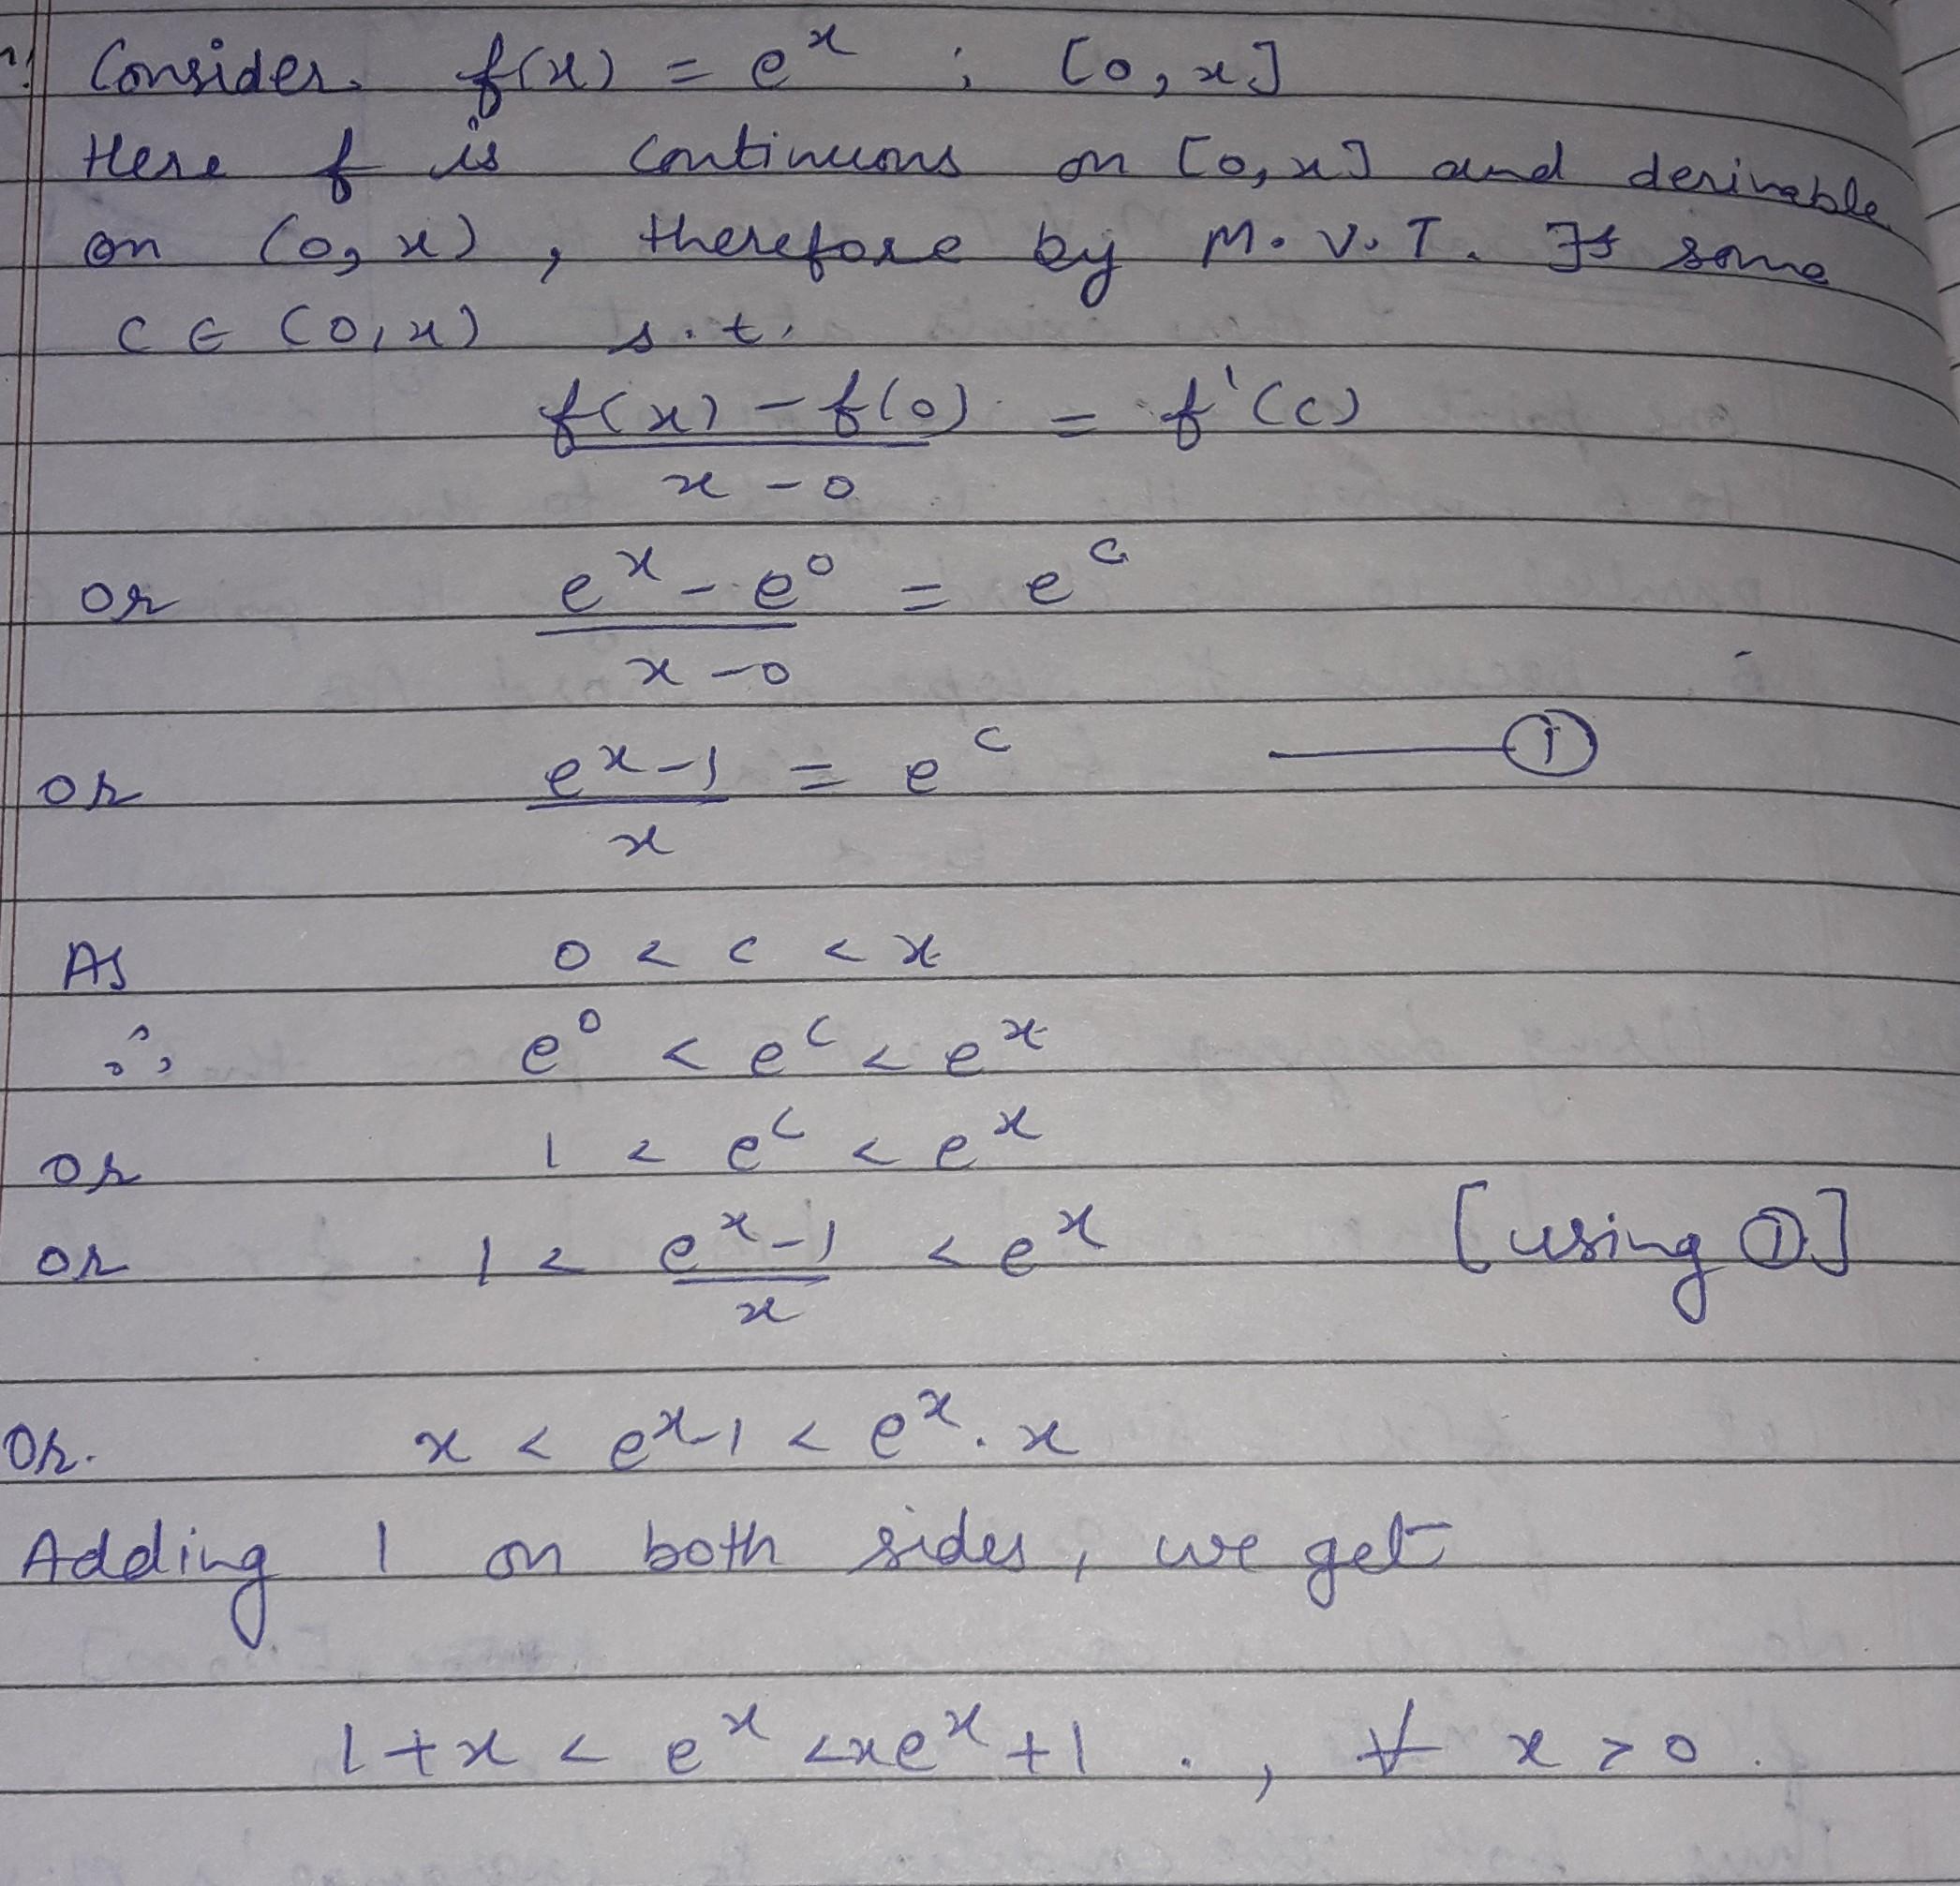 Consider f(x) = e^x ; [0, x]
Here f is continuous on [0, x] and derivable
on (0, x) , therefore by M.V.T. ∃s some
c ∈ (0, x) s.t.
f(x) - f(0) = f'(c)
x - 0
or e^x - e^0 = e^c
x - 0
or e^x - 1 = e^c —— ①
x
As 0 < c < x
∴ e^0 < e^c < e^x
or 1 < e^c < e^x
or 1 < e^x - 1 < e^x [using ①]
x
or. x < e^x - 1 < e^x . x
Adding 1 on both sides, we get
1 + x < e^x < xe^x + 1 . , ∀ x > 0 .